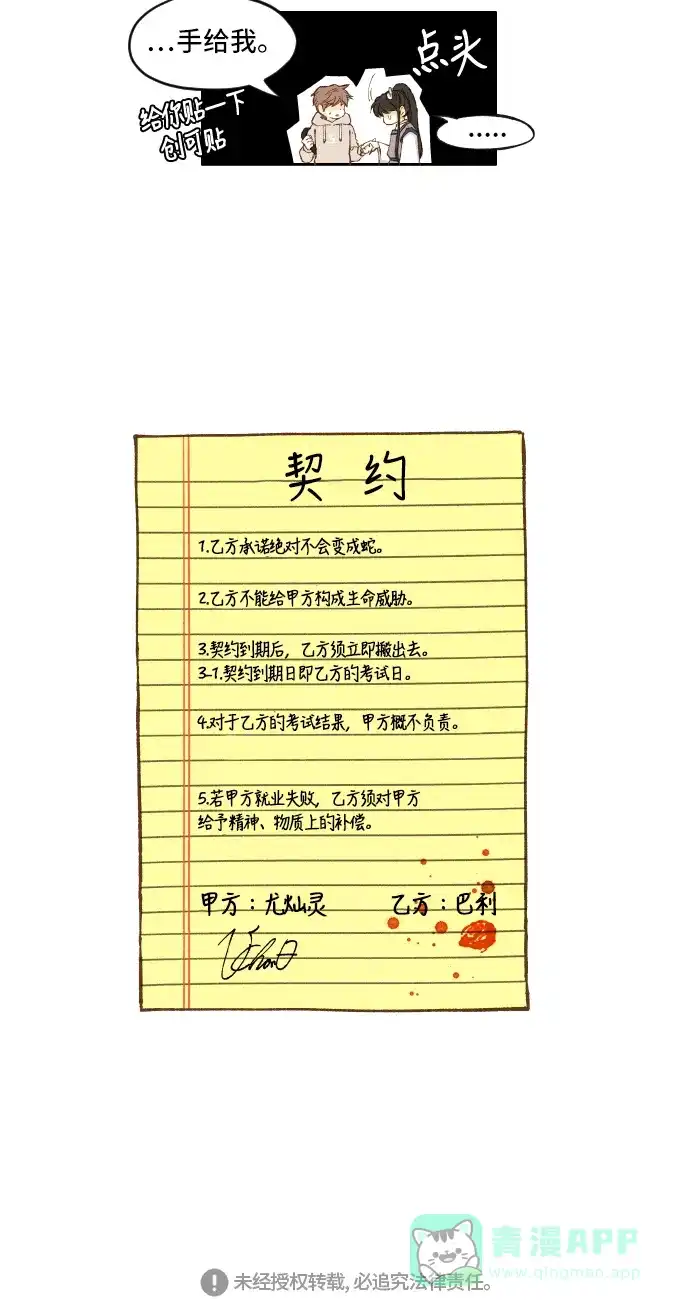 ...手给我。
点头
给你贴一下
创可贴
.....
契约
1.乙方承诺绝对不会变成蛇。
2.乙方不能给甲方构成生命威胁。
3.契约到期后，乙方须立即搬出去。
3-1.契约到期日即乙方的考试日。
4.对于乙方的考试结果，甲方概不负责。
5.若甲方就业失败，乙方须对甲方
给予精神、物质上的补偿。
甲方：尤灿灵 乙方：巴利
青漫APP
www.qingman.app
未经授权转载，必追究法律责任。